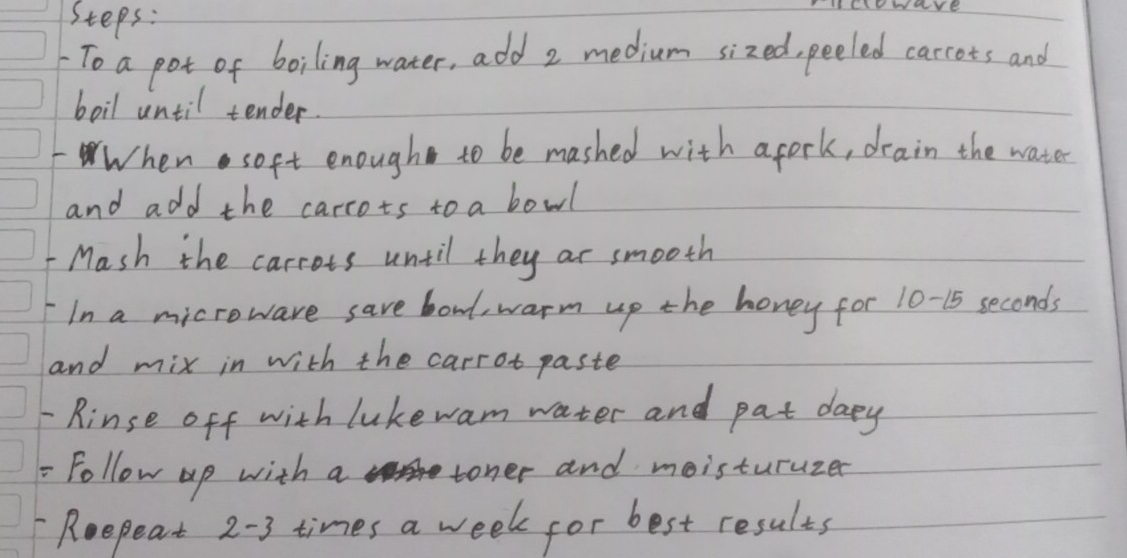 Microwave
Steps:
- To a pot of boiling water, add 2 medium sized, peeled carrots and
boil until tender.
- When soft enough to be mashed with a fork, drain the water
and add the carrots to a bowl
- Mash the carrots until they ar smooth
- In a microware save bowl, warm up the honey for 10-15 seconds
and mix in with the carrot paste
- Rinse off with lukewam water and pat darpy
= Follow up with a toner and moisturuzer
- Roepeat 2-3 times a week for best results